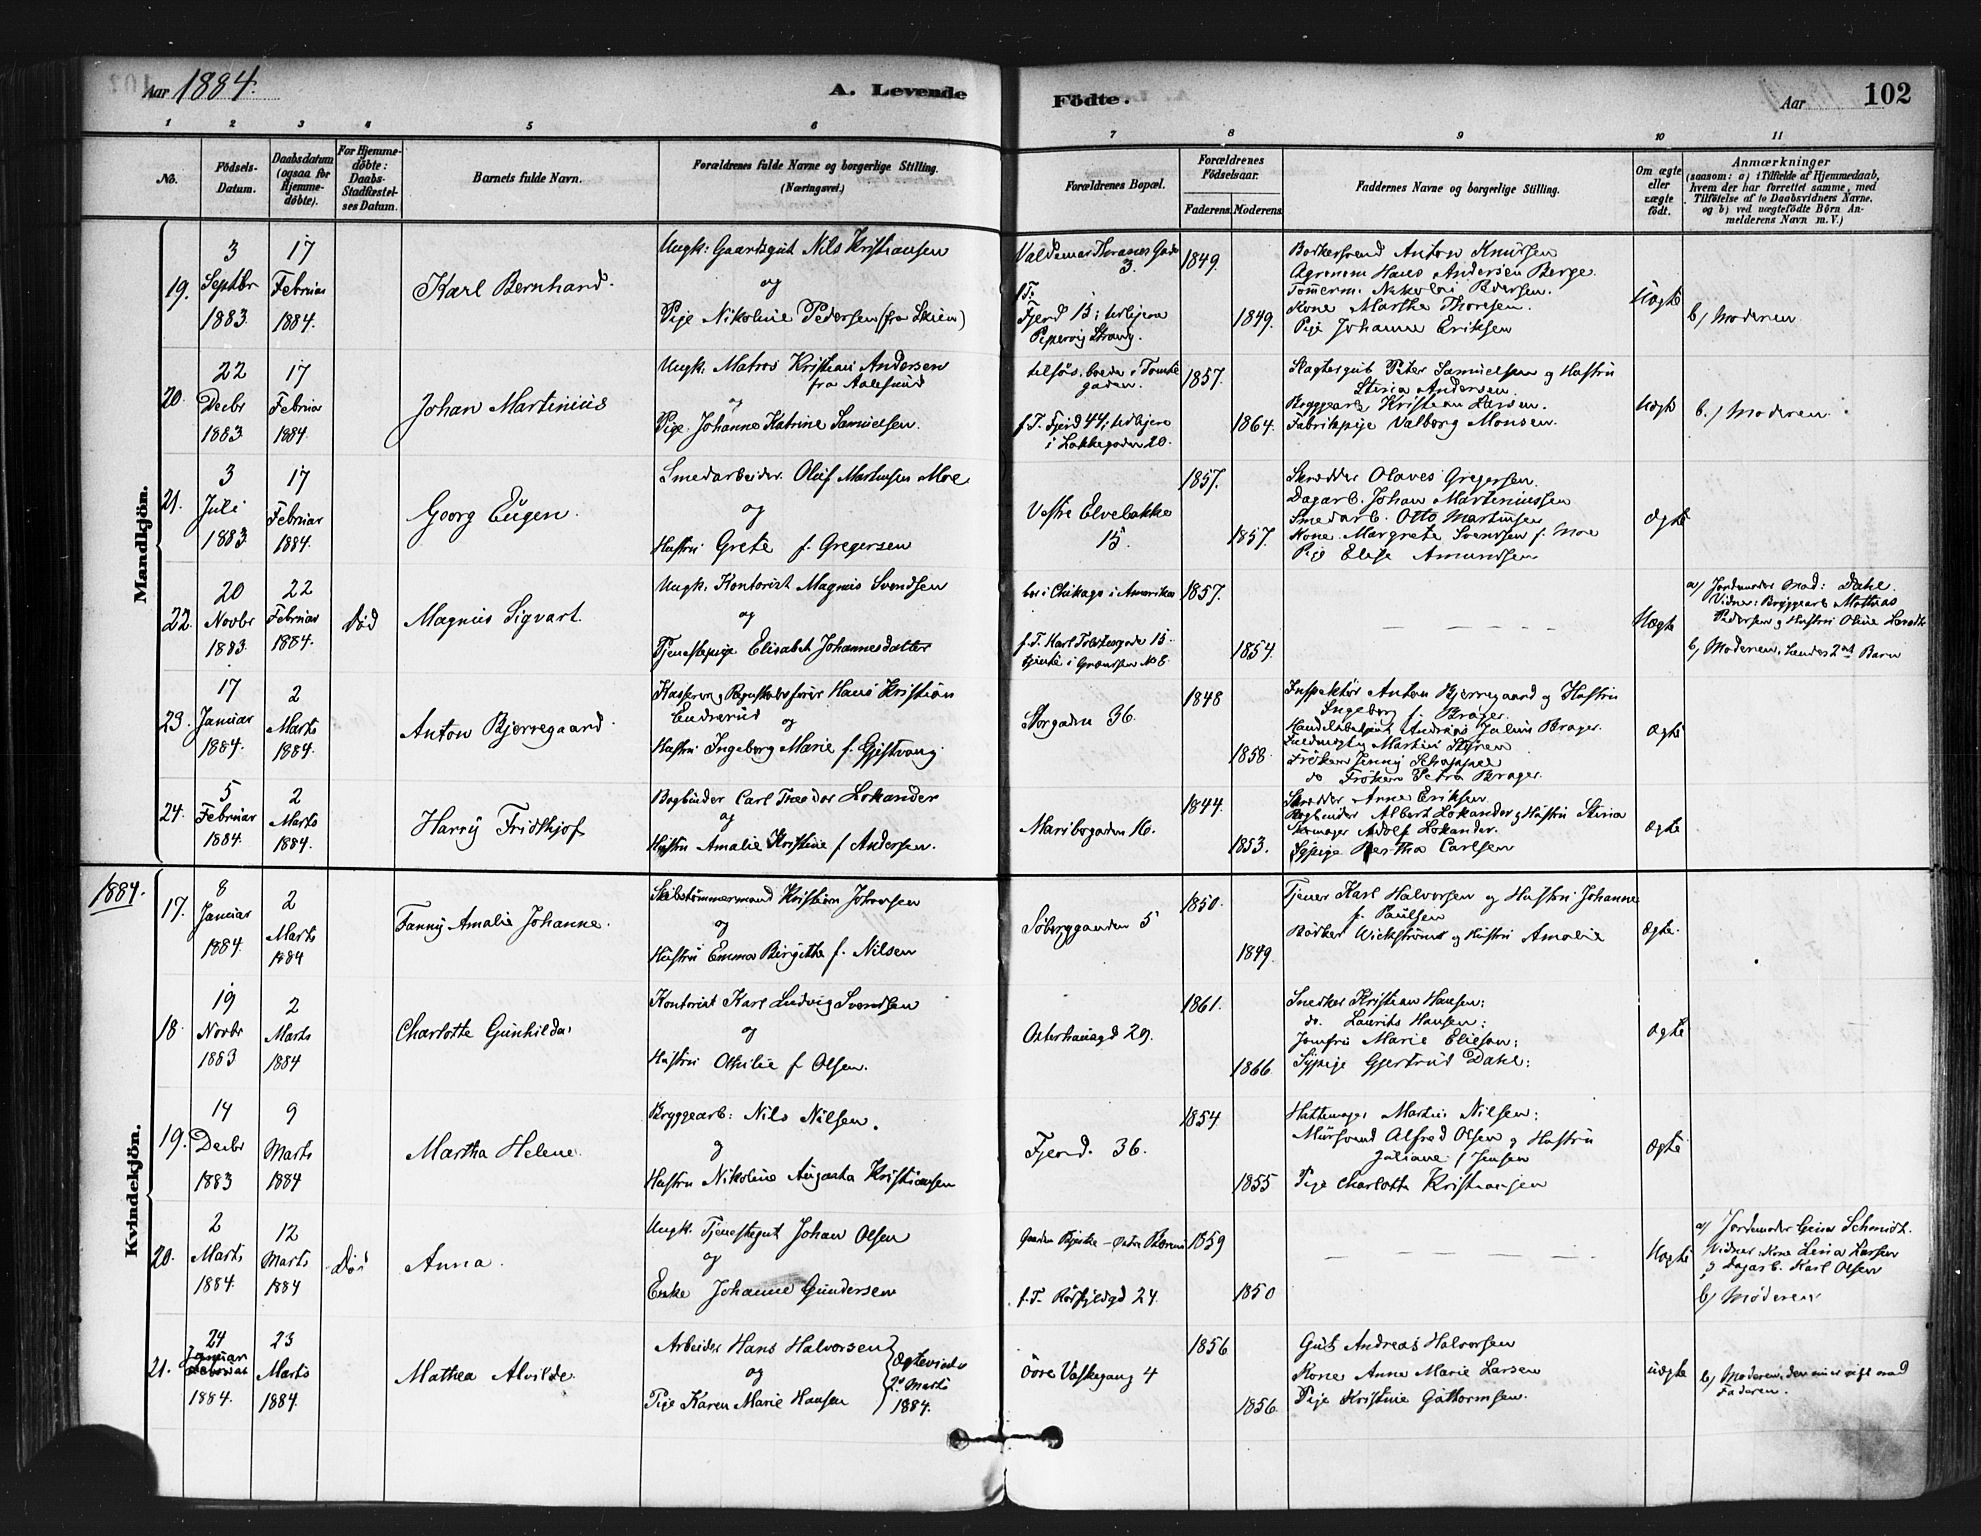 Aar 1884. A. Levende Födte. Aar 102
1 2 3 4 5 6 7 8 9 10 11
No.
Födsels-Datum.
Daabsdatum (ogsaa for Hjemmedöbte).
For Hjemmedöbte: Daabs-Stadfæstelses Datum.
Barnets fulde Navn.
Forældrenes fulde Navne og borgerlige Stilling. (Næringsvei.)
Forældrenes Bopæl.
Forældrenes Födselsaar.
Faderens. Moderens.
Faddernes Navne og borgerlige Stilling.
Om ægte eller uægte födt.
Anmærkninger
(saasom: a) i Tilfælde af Hjemmedaab,
hvem der har forrettet samme, med
Tilföielse af to Daabsvidners Navne,
og b) ved uægtefödte Börn An-
melderens Navn m. V.)
Mandkjön.
19. 3 Septbr 1883. 17 Februar 1884.
Karl Bernhard.
Ungk: Gaardsgut Nils Kristiansen
og
Pige Nikoline Pedersen (fra Skien)
Valdemar Thranes Gade 3.
f. T. Fjerd 15; tilhjem Pipervig Strang.
1849.
1849.
Bødkersvend Anton Knudsen
Agronom Hans Andersen Berge.
Tømmerm. Nikolai Pedersen.
Kone Marthe Thoresen.
Pige Johanne Eriksen
Uægte
b) Moderen.
20. 22 Decbr 1883. 17 Februar 1884.
Johan Martinius
Ungk. Matros Kristian Andersen
fra Aalesund
og
Pige Johanne Katrine Samuelsen.
tilsøs, boede i Tomtegaden.
f. T. Fjerd 44;
i Lakkegaden 20.
1857.
1864.
Slagtergut Peter Samuelsen og Hustru
Stina Andersen
Bryggearb Kristian Larsen.
Fabrikpige Valborg Monsen.
Uægte
b.) Moderen.
21. 3 Juli 1883 17 Februar 1884.
Georg Eugen.
Smedarbeider Oluf Martinsen Moe
og
Hustru Grete f. Gregersen
Vestre Elvebakke
15.
1857.
1857.
Skrædder Olaves Gregersen.
Dagarb. Johan Martiniussen
Smedarb. Otto Martinsen
Kone Margrete Svendsen f. Moe
Pige Elise Amundsen
Ægte
22. 20 Novbr 1883. 22 Februar 1884. Død
Magnus Sigvart.
Ungk. Kontorist Magnus Svendsen
og
Tjenestepige Elisabet Johannesdatter
bor i Chikago i Amerika
f. T. Karl Johansgade 15.
tjente i Grændsen No 8.
1857.
1854.
Uægte
a) Jordemoder Mad: Dahl.
Vidner: Bryggearb Mathias
Pedersen og Hustru Oline
b) Moderen, hendes 2det Barn
23. 17 Januar 1884. 2 Marts 1884.
Anton Bjerregaard.
Kasserer og Regnskabsfører Hans Kristian
Endrerud
og
Hustru Ingeborg Marie f. Gjistvang.
Storgaden 36.
1848
1858.
Inspektør Anton Bjerregaard og Hustru
Ingeborg f. Brager.
Andreas Julius Brager.
Fuldmægtig Martin Styren
Frøken Jenny Schappel
do Frøken Petra Brager.
Ægte
24. 5 Februar 1884. 2 Marts 1884.
Harry Fridthjof
Bogbinder Carl Theodor Lokander
og
Hustru Amalie Kristine f Andersen.
Mariboegaden 16.
1844.
1853.
Skrædder Arne Eriksen
Bogbinder Albert Lokander og Hustru Stina
Skomager Adolf Lokander.
Sypige Bertha Carlsen
Ægte
1884.
Kvindekjön.
17. 8 Januar 1884. 2 Marts 1884
Fanny Amalie Johanne.
Skibstømmermand Kristian Johnsen
og
Hustru Emma Birgitte f. Nilsen
Søbergganden 5
1850.
1849.
Tjener Karl Halvorsen og Hustru Johanne
f. Paulsen
Bødker Wickstrøm og Hustru Amalie
Ægte.
18. 19 Novbr 1883 2 Marts 1884
Charlotte Gunhilda
Kontorist Karl Ludvig Svendsen
og
Hustru Othilie f Olsen.
Osterhausgd 29.
1861.
1866
Snedker Kristian Hansen;
do. Laurits Hansen;
Jomfru Marie Eliesen;
Sypige Gjertrud Dahl;
Ægte
19. 14 Decbr 1883 9 Marts 1884
Martha Helene.
Bryggearb: Nils Nilsen.
og
Hustru Nikoline Augusta Kristiansen
Fjerd. 36.
1854
1855
Hattemager Martin Nilsen;
Mursvend Alfred Olsen og Hustru
Juliane f Jensen
Pige Charlotte Kristiansen
Ægte
20. 2 Marts 1884. 12 Marts 1884 Død
Anna.
Ungk. Tjenestegut Johan Olsen
og
Enke Johanne Gundersen
Gaarden Østre Bærum
f. T. Rødfyldgd 24.
1859
1850
Uægte
a) Jordemoder Gina Schmidt.
Vidner: Kone Lina Larsen
og Dagarb. Karl Olsen
b) Moderen
21. 24 Januar Februar 1884. 23 Marts 1884.
Mathea Alvilde.
Arbeider Hans Halvorsen
og
Pige Karen Marie Hansen
Ægteviede 2d Marts 1884.
Övre Vaskegang 4
1856
1856.
Gut Andreas Halvorsen
Kone Anne Marie Larsen
Pige Kristine Guthormsen.
uægte
b) Moderen, den nu er vigt med
Faderen.